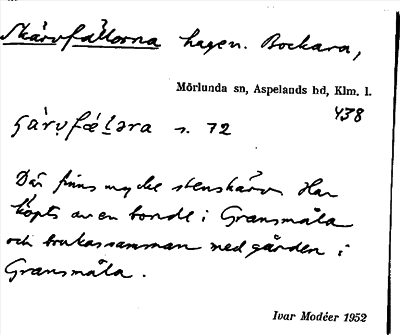 Skärvfållorna hagen. Bockara,
Mörlunda sn, Aspelands hd, Klm. l.
438
s. 72
Där finns mycket stenskärv. Har
köpts av en bonde i Gransmåla
och brukas samman med gården i
Gransmåla.
Ivar Modéer 1952